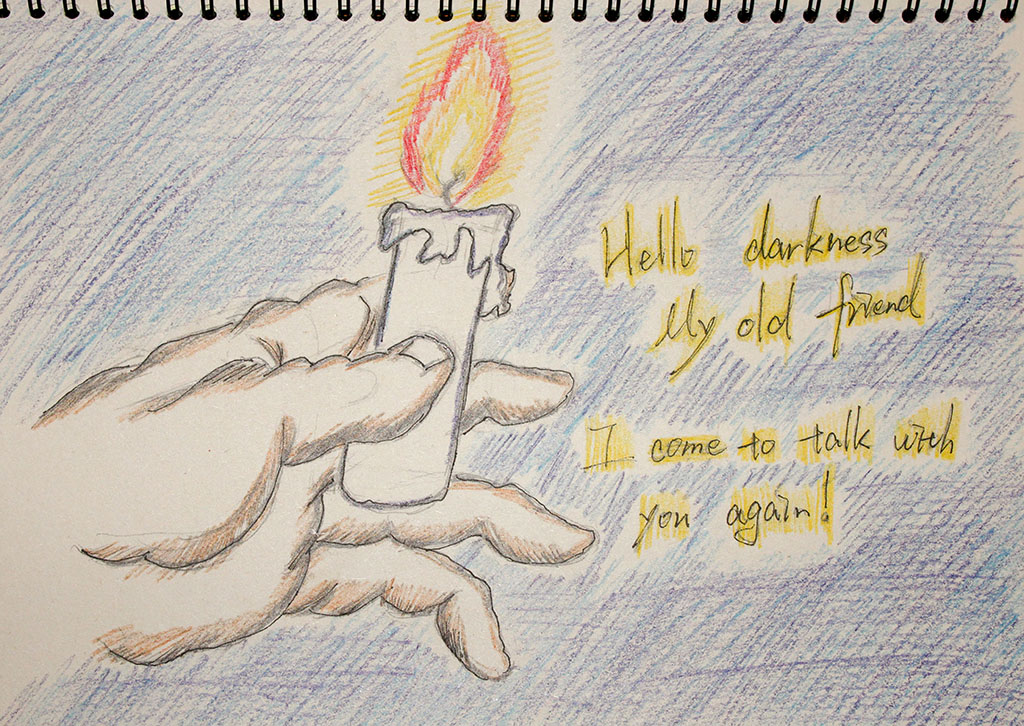 Hello darkness
My old friend
I come to talk with
you again!